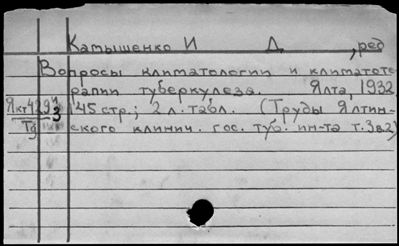 Камышенко И Д , ред
Вопросы климатологии и климатоте
рапии туберкулеза. Ялта, 1932
145 стр.; 2 л. табл. (Труды Ялтин-
ского клинич. гос. туб. ин-та т. 3в2)